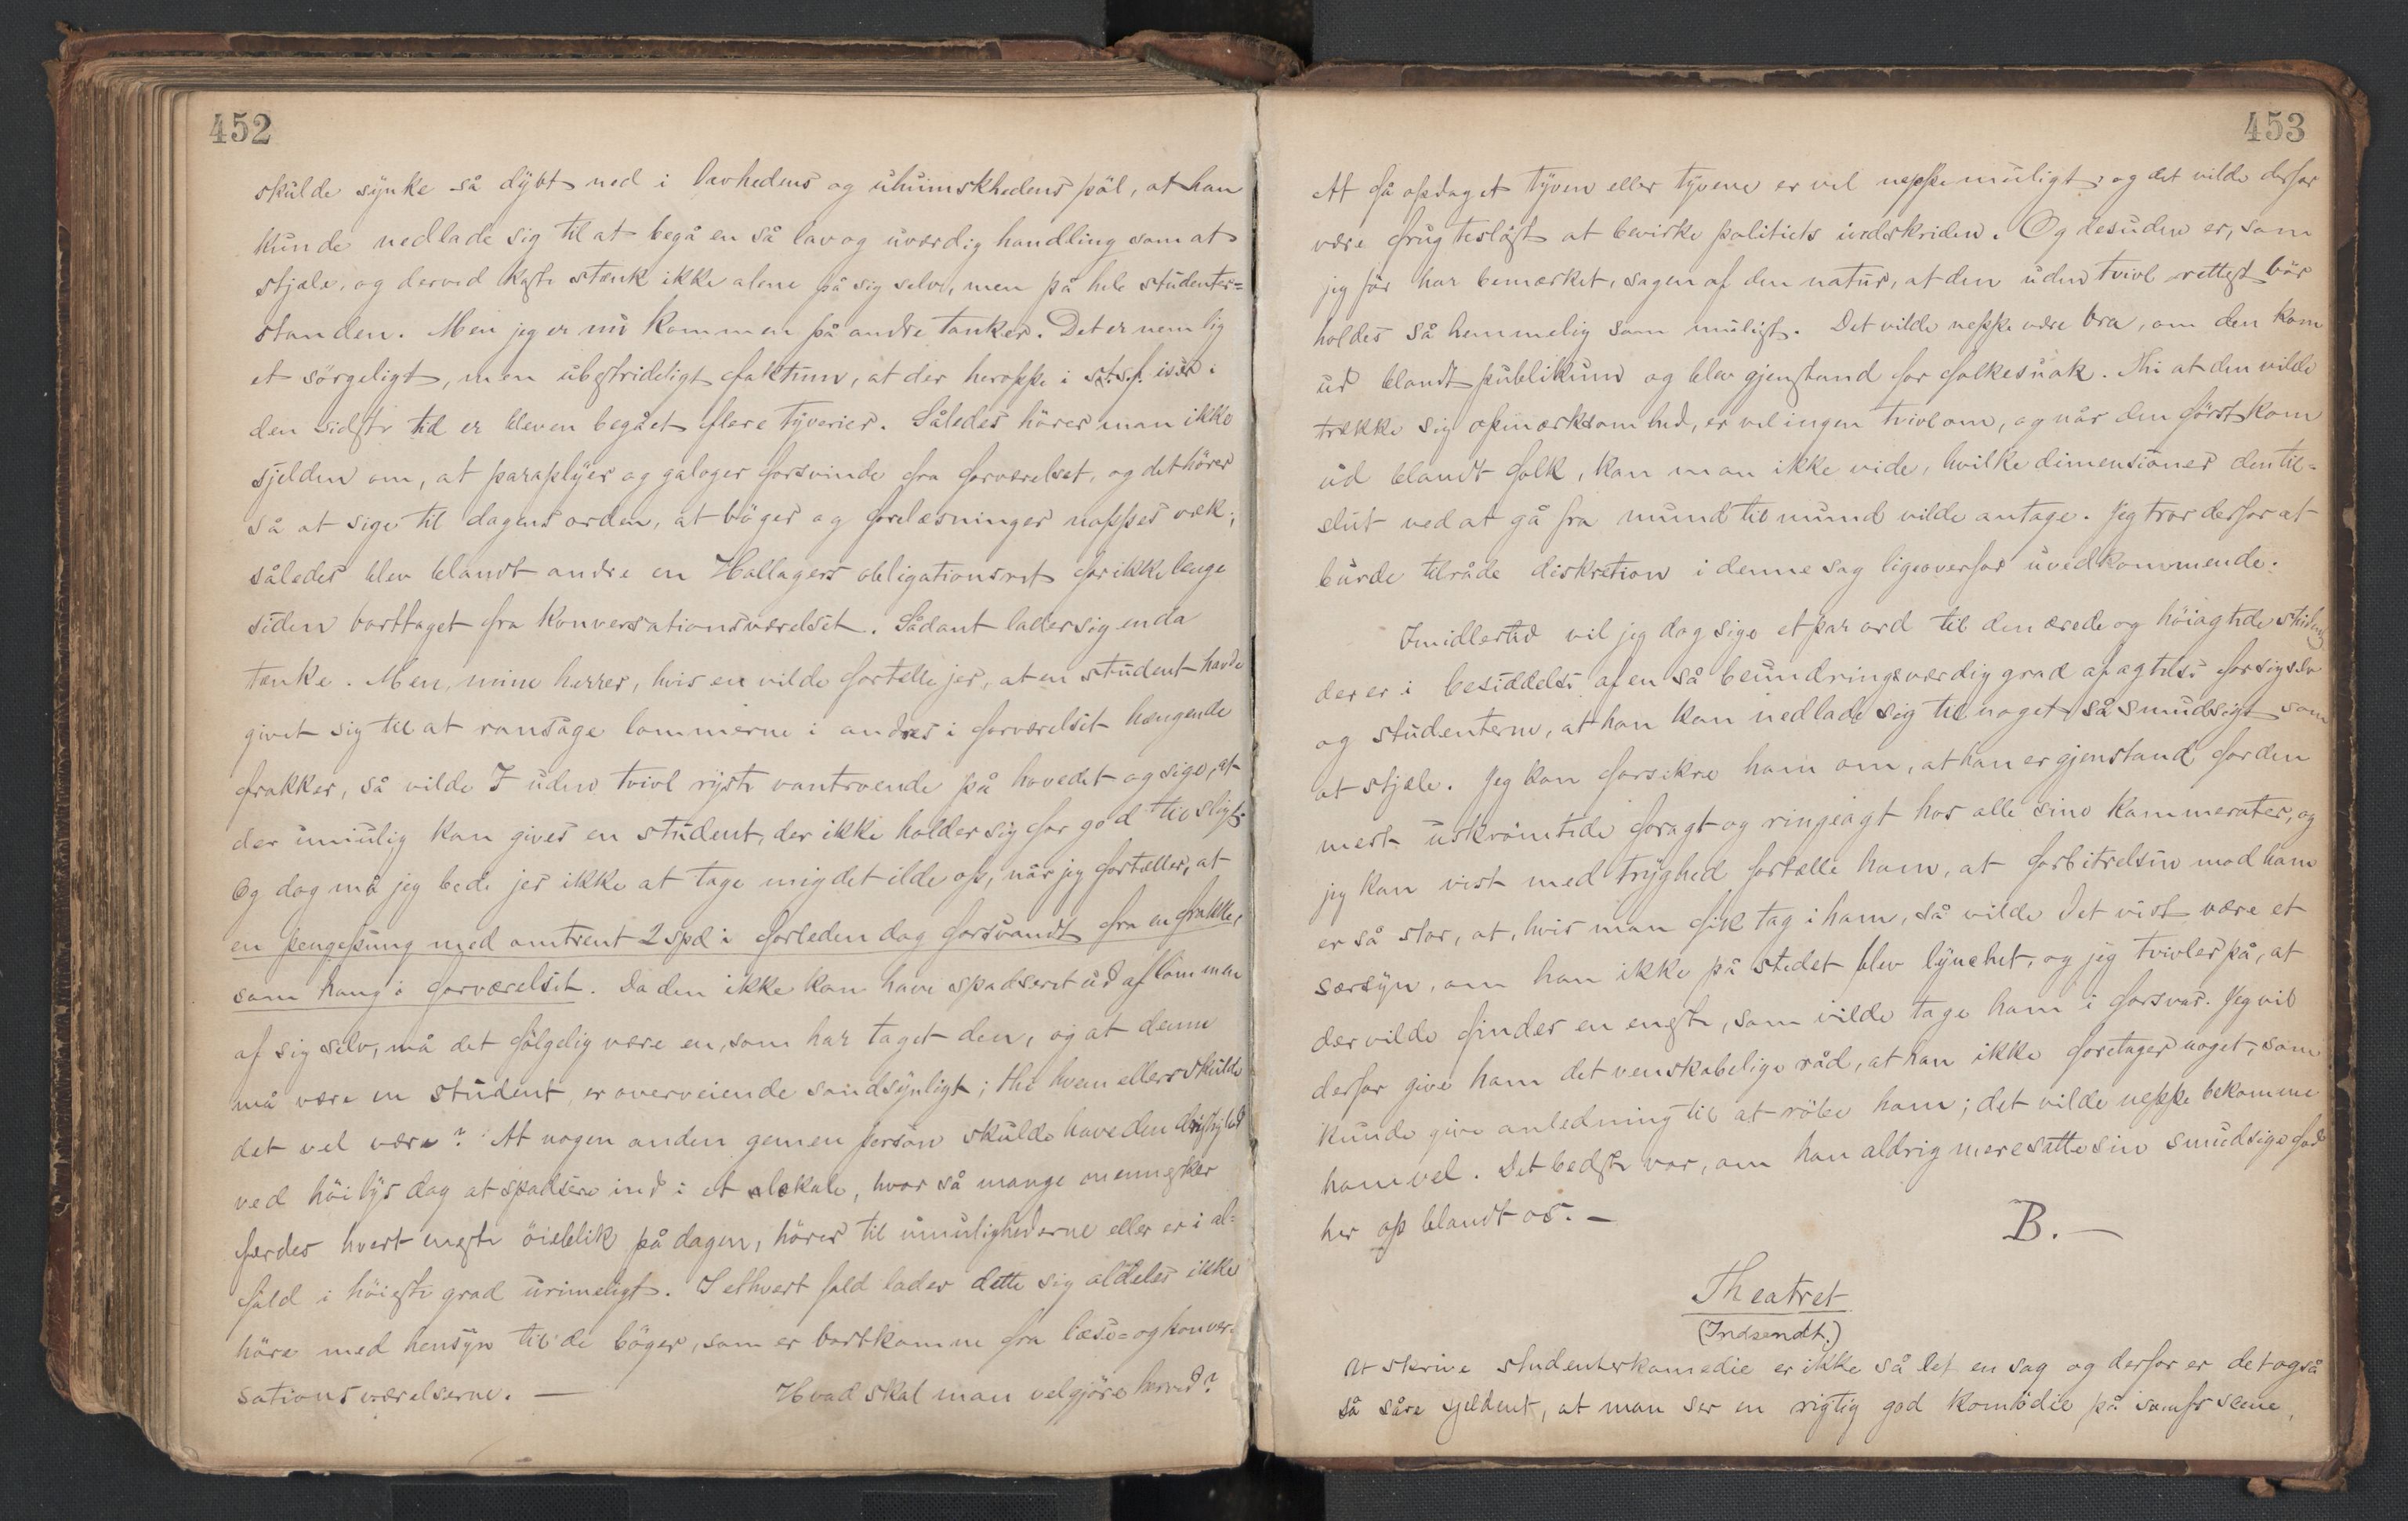 452
skulde synke så dybt ned i lavhedens og uhumskhedens pöl, at han
kunde nedlade sig til at begå en så lav og uværdig handling som at
stjæle, og derved kaste stænk ikke alene på sig selv, men på hele studenter=
standen. Men jeg er nu kommen på andre tanker. Det er nemlig
et sörgeligt, men ubestrideligt faktum, at der heroppe i st.s.f. især i
den sidste tid er bleven begået flere tyverier. Således hörer man ikke
sjelden om, at paraplyer og galoger forsvinde fra forværelset, og det hörer
så at sige til dagens orden, at böger og forelæsninger nappes væk;
således blev blandt andre en Hallagers obligationsret for ikke længe
siden borttaget fra konversationsværelset. Sådant lader sig enda
tænke. Men, mine herrer, hvis en vilde fortælle jer, at en student havde
givet sig til at ransage lommerne i andres i forværelset hængende
frakker, så vilde I uden tvivl ryste vantroende på hovedet og sige, at
der umulig kan gives en student, der ikke holder sig for god til sligt.
Og dog må jeg bede jer ikke at tage mig det ilde op, når jeg fortæller, at
en pengepung med omtrent 2 spd i forleden dag forsvandt fra en frakke,
som hang i forværelset. Da den ikke kan have spadseret ud af lommen
af sig selv, må det fölgelig være en, som har taget den, og at denne
må være en student, er overveiende sandsynligt; thi hvem ellers skulde
det vel være? At nogen anden gemen person skulde have den dristighed
ved höilys dag at spadsere ind i et lokale, hvor så mange mennesker
færdes hvert eneste öieblik på dagen, hörer til umulighederne eller er i al=
fald i höieste grad urimeligt. I ethvert fald lader dette sig aldeles ikke
höre med hensyn til de böger, som er bortkomne fra læse= og konver=
sationsværelserne. — Hvad skal man vel gjöre herved?
453
At få opdaget tyven eller tyvene er vel neppe muligt; og det vilde derfor
være frugteslöst at bevirke politiets indskriden. Og desuden er, som
jeg för har bemærket, sagen af den natur, at den uden tvivl rettest bör
holdes så hemmelig som muligt. Det vilde neppe være bra, om den kom
ud blandt publikum og blev gjenstand for folkesnak. Thi at den vilde
trække sig opmærksomhed, er vel ingen tvivl om, og når den förstkom
ud blandt folk, kan man ikke vide, hvilke dimensioner den til=
slut ved at gå fra mund til mund vilde antage. Jeg tror derfor at
burde tilråde diskretion i denne sag ligeoverfor uvedkommende.
Imidlertid vil jeg dog sige et par ord til den ærede og höiagtede
der er i besiddelse af en så beundringsværdig grad af agtelse for sig selv
og studenterne, at han kan nedlade sig til noget så smudsigt som
at stjæle. Jeg kan forsikre ham om, at han er gjenstand for den
mest uskrömtede foragt og ringeagt hos alle sine kammerater, og
jeg kan vist med tryghed fortælle ham, at forbitrelsen mod ham
er så stor, at, hvis man fik tag i ham, så vilde det vist være et
særsyn, om han ikke på stedet blev lynchet, og jeg tvivler på, at
der vilde findes en eneste, som vilde tage ham i forsvar. Jeg vil
derfor give ham det venskabelige råd, at han ikke foretager noget, som
kunde give anledning til at röbe ham; det vilde neppe bekomme
ham vel. Det bedste var, om han aldrig mere satte sin smudsige fod
her op blandt os. —
B. —
Theatret
(Indsendt.)
At skrive studenterkomedie er ikke så let en sag og derfor er det også
så såre sjeldent, at man ser en rigtig god komödie på samfs scene,